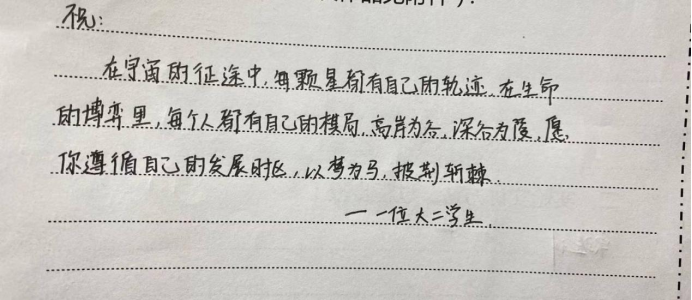 祝:
在宇宙的征途中,每颗星都有自己的轨迹,在生命
的博弈里,每个人都有自己的棋局,高岸为谷,深谷为陵,愿
你遵循自己的发展时区,以梦为马,披荆斩棘.
——一位大二学生.